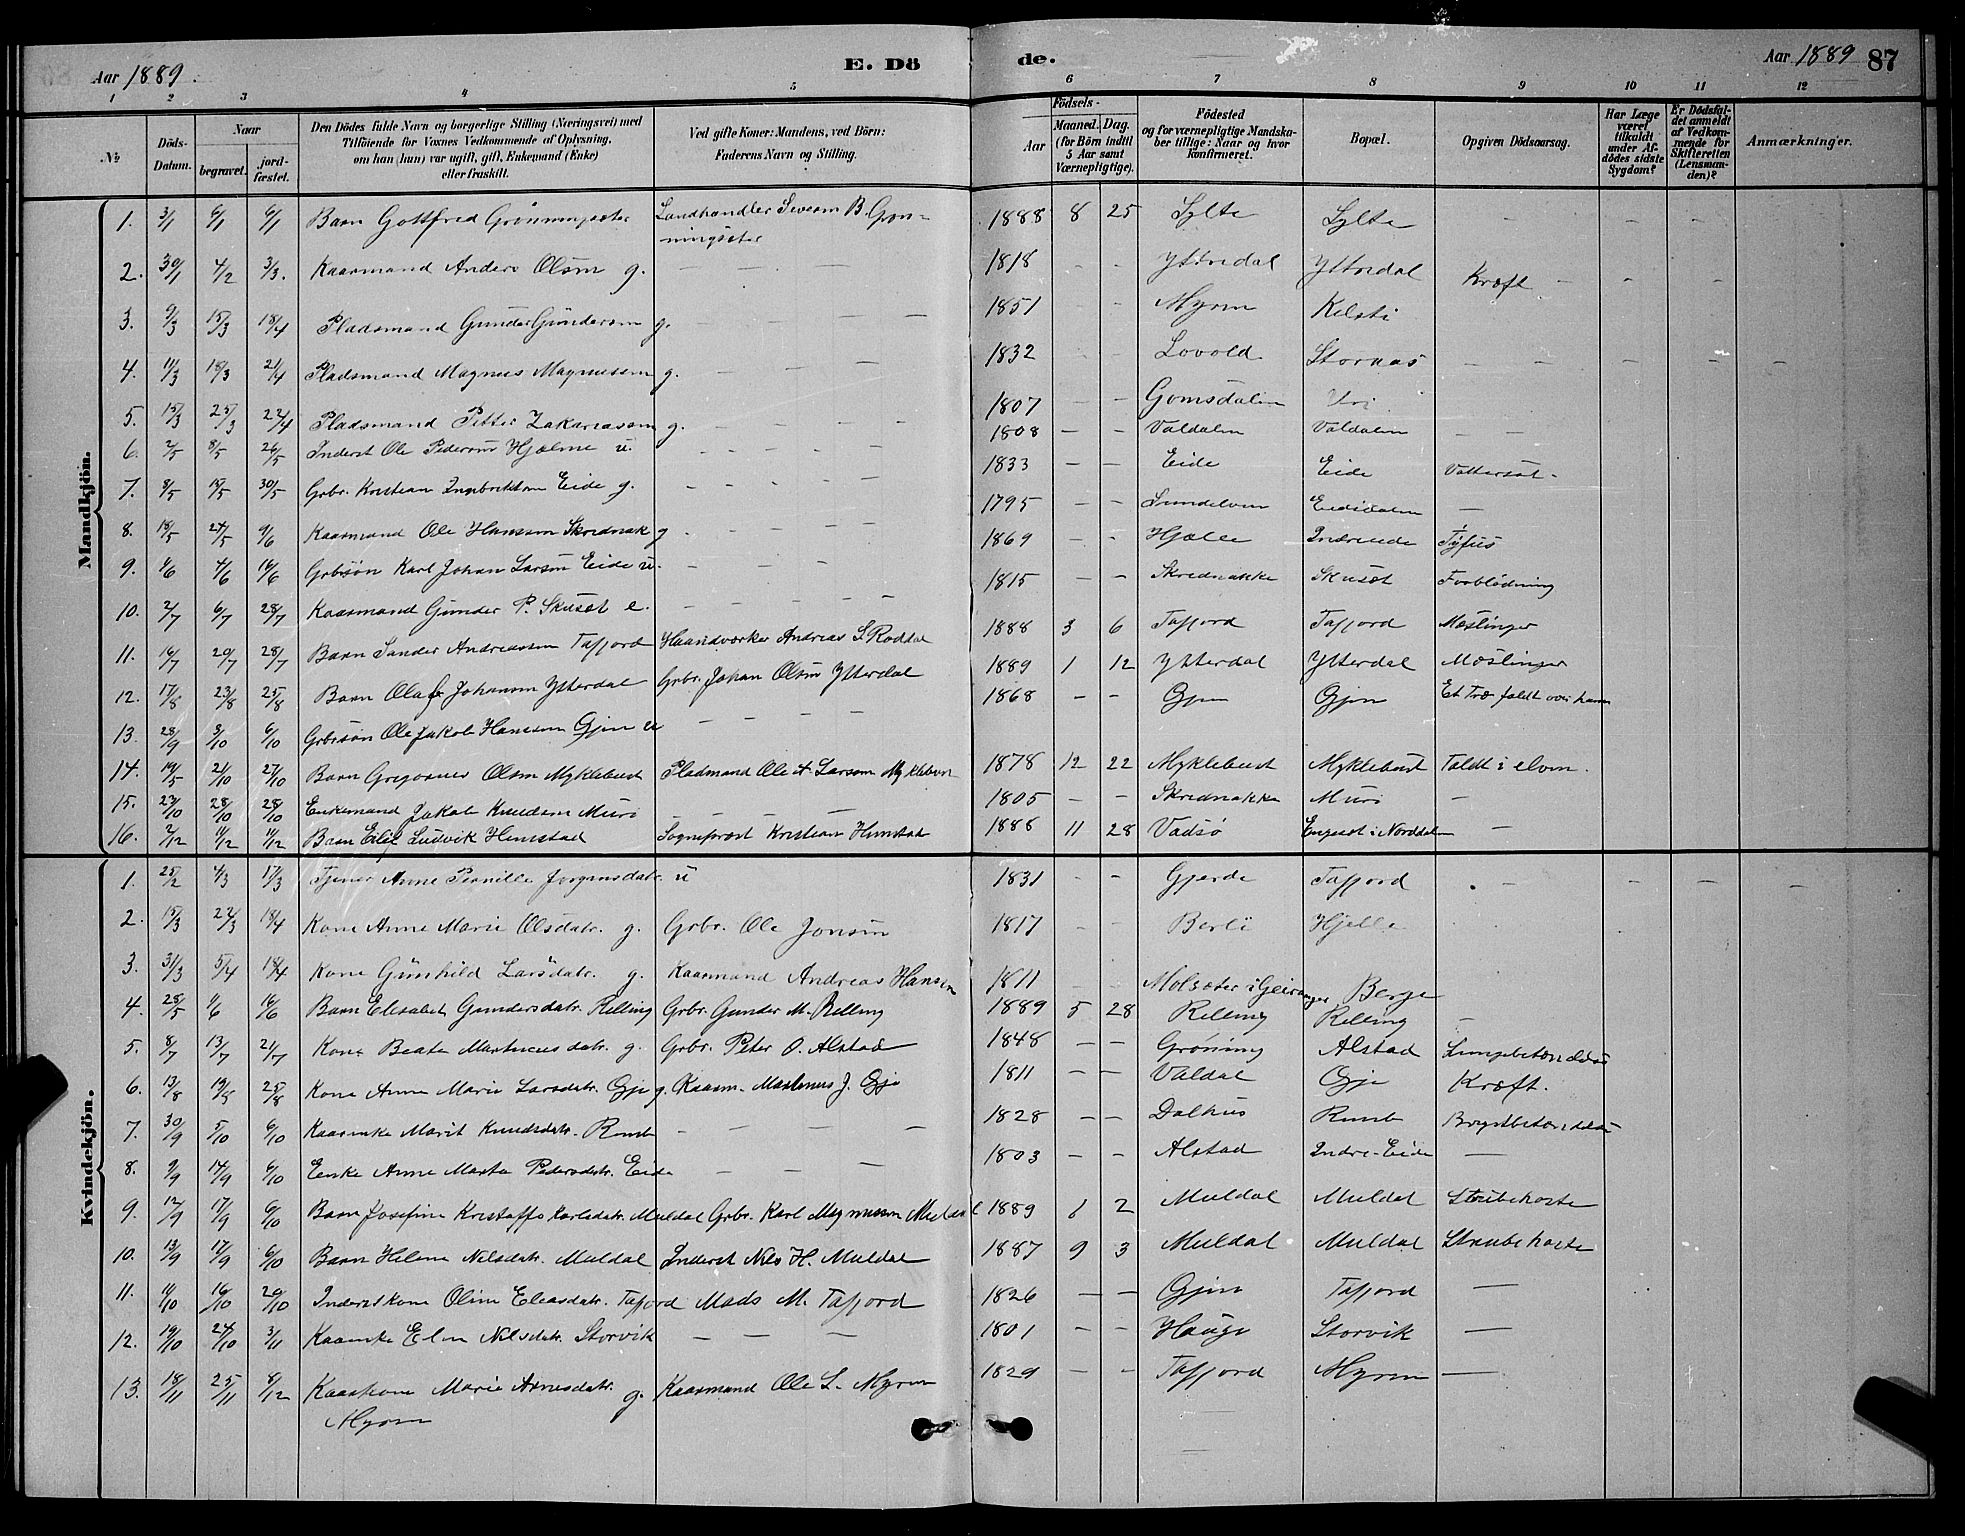 Aar 1889.
E. Dö
de.
Aar 1889
87
1 2 3 4 5 6 7 8 9 10 11 12
No
Döds-Datum.
Naar
begravet.
jord-fæstet.
Den Dödes fulde Navn og borgerlige Stilling (Næringsvei) med
Tilföiende for Voxnes Vedkommende af Oplysning,
om han (hun) var ugift, gift, Enkemand (Enke)
eller fraskilt.
Ved gifte Koner: Mandens, ved Börn:
Faderens Navn og Stilling.
Födsels-
Aar
Maaned. Dag.
(for Börn indtil
5 Aar samt
Værnepligtige).
Födested
og for værnepligtige Mandska-
ber tillige: Naar og hvor
konfirmeret.
Bopæl.
Opgiven Dödsaarsag.
Har Læge
været
tilkaldt
under Af-
dödes sidste
Sygdom?
Er Dödsfal-
det anmeldt
af Vedkom-
mende for
Skifteretten
(Lensman-
den)?
Anmærkninger.
Mandkjön.
1. 3/1 6/1 6/1 Barn Gottfred Grönningsæter Landhandler B. Grön- 1888 8 25 Sylte Sylte - - - -
ningsæter
2. 30/1 4/2 3/3. Kaarmand Anders Olsen g. - - - 1818 - - Yttredal Yttredal Kræft - - - -
3. 9/3 15/3 18/4 Pladsmand Gunder Gundersen g. - - 1851 - - Myren Kilsti
4. 11/3 18/3 21/4 Pladsmand Magnus Magnussen g. - - - 1832 - - Lovold Stornaas - - - - -
5. 15/3 25/3 22/4 Pladsmand Petter Zakariassen g. - - - 1807 - - Gomsdalen Uri
6. 2/5 8/5 26/5 Inderst Ole Pedersen Hjelme u. - - - - 1808 - - Valdalen Valdalen - -
7. 8/5 15/5 30/5 Grbr. Kristian Ingebriktsen Eide g. - - - - - 1833 - - Eide Eide Vattersot -
8. 18/5 24/5 9/6 Kaarmand Ole Hanssen Skrednak g. - - - - 1795 - - Eidsdalen -
9. 1/6 4/6 16/6 Grbrsøn Karl Johan Larsen Eide u. - - - - 1869 - - Hjelle Indreeide Tyfus
10. 2/7 6/7 28/7 Kaarmand Gunder P. Skusët e. - - - - - 1815 - - Skrednakke Skusët Forblödning
11. 16/7 20/7 28/7 Barn Sander Andreassen Tafjord Haandværker Andreas S. Röddal 1888 3 6 Tafjord Tafjord Mæslinger
12. 17/8 23/8 25/8 Barn Olaf Johansen Ytterdal Grbr. Johan Olsen Ytterdal 1889 1 12 Ytterdal Ytterdal Mæslinger
13. 28/9 3/10 6/10 Grbrsön Ole Jakob Hanssen Gjen u - - - - 1868 - - Gjen Gjen Et Træ faldt over ham
14. 19/5 21/10 27/10 Barn Olsen Myklebust Pladmand Ole A. Larsen Myklebust 1878 12 22 Myklebust Myklebust Faldt i elven.
15. 23/10 28/10 28/10 Enkemand Jakob Knudsen Muri - 1805 - - Skrednakke Muri -
16. 7/12 11/12 11/12 Barn Eilif Ludvik Himstad Sogneprest Kristian Himstad 1888 11 28 Vadsø Engeset i Norddalen -
Kvindekjön.
1. 25/2 4/3 17/3 Tjener Anne Pernille Jørgensdatr. u 1831 - - Gjerde Tafjord - - - -
2. 15/3 22/3 18/4 Kone Anne Marie Olsdatr. g. Grbr. Ole Jonsen 1817 - - Berli Hjelle
3. 31/3 5/4 18/4 Kone Gunhild Larsdatr. g. Kaarmand Andreas Hansen 1811 - - Molsæter i Geiranger Berge
4. 28/5 1/6 16/6 Barn Elesabet Gundersdatr. Relling Grbr. Gunder M. Relling 1889 5 28 Relling Relling -
5. 8/7 13/7 21/7 Kone Beate Martinusdatr. g. Grbr. Peter O. Alstad 1848 - - Grøning Alstad Lungebetændelse
6. 13/8 19/8 25/8 Kone Anne Marie Larsdatr. Gje g. Kaarm. Martenus J. Gje 1811 - - Valdal Gje Kræft.
7. 30/9 5/10 6/10 Kaarenke Marit Knudsdatr. Rem - - - - 1828 - - Dalhus Brystbetændelse
8. 9/9 14/9 6/10 Enke Anne Marta Pedersdatr. Eide - - - 1803 - - Alstad Indre-Eide -
9. 12/9 17/9 6/10 Barn Josefine Kristoffa Karlsdatr. Muldal Grbr. Karl Magnussen Muldal 1889 1 2 Muldal Muldal Strubehoste
10. 13/9 17/9 6/10 Barn Helene Nilsdatr. Muldal Inderst Nils H. Muldal 1887 9 3 Muldal Muldal Strubehoste
11. 11/10 16/10 20/10 Inderstkone Oline Eleasdatr. Tafjord Mads M. Tafjord 1826 - - Gjen Tafjord -
12. 19/10 24/10 3/11 Kaarenke Elen Nilsdatr. Storvik - - - 1801 - - Hauge Storvik -
13. 18/11 25/11 8/12 Kaarkone Marie Arnesdatr. g. Kaarmand Ole L. Myren 1829 - - Tafjord Myren -
Myren